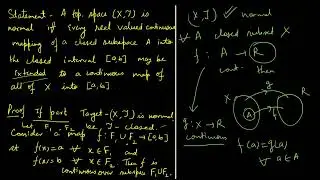 Statement - A top. space (X,J) is
normal if every real valued continuous
mapping of a closed subspace A into
the closed interval [a,b] may be
Extended to a continuous map of
all of X into [a,b]
Proof If part Target - (X,J) is normal
Let F₁, F₂ be J-closed.
Consider a map f: F₁∪F₂→[a,b]
st f(x)=a ∀ x∈F₁ and
f(x)=b ∀ x∈F₂. Then f is
continuous over subspace F₁∪F₂.
(X,J) normal
∀ A closed subset X
f: A → R
cont. then
g
A
f
R
g: X → R
continuous
f(a)=g(a)
∀ a∈A